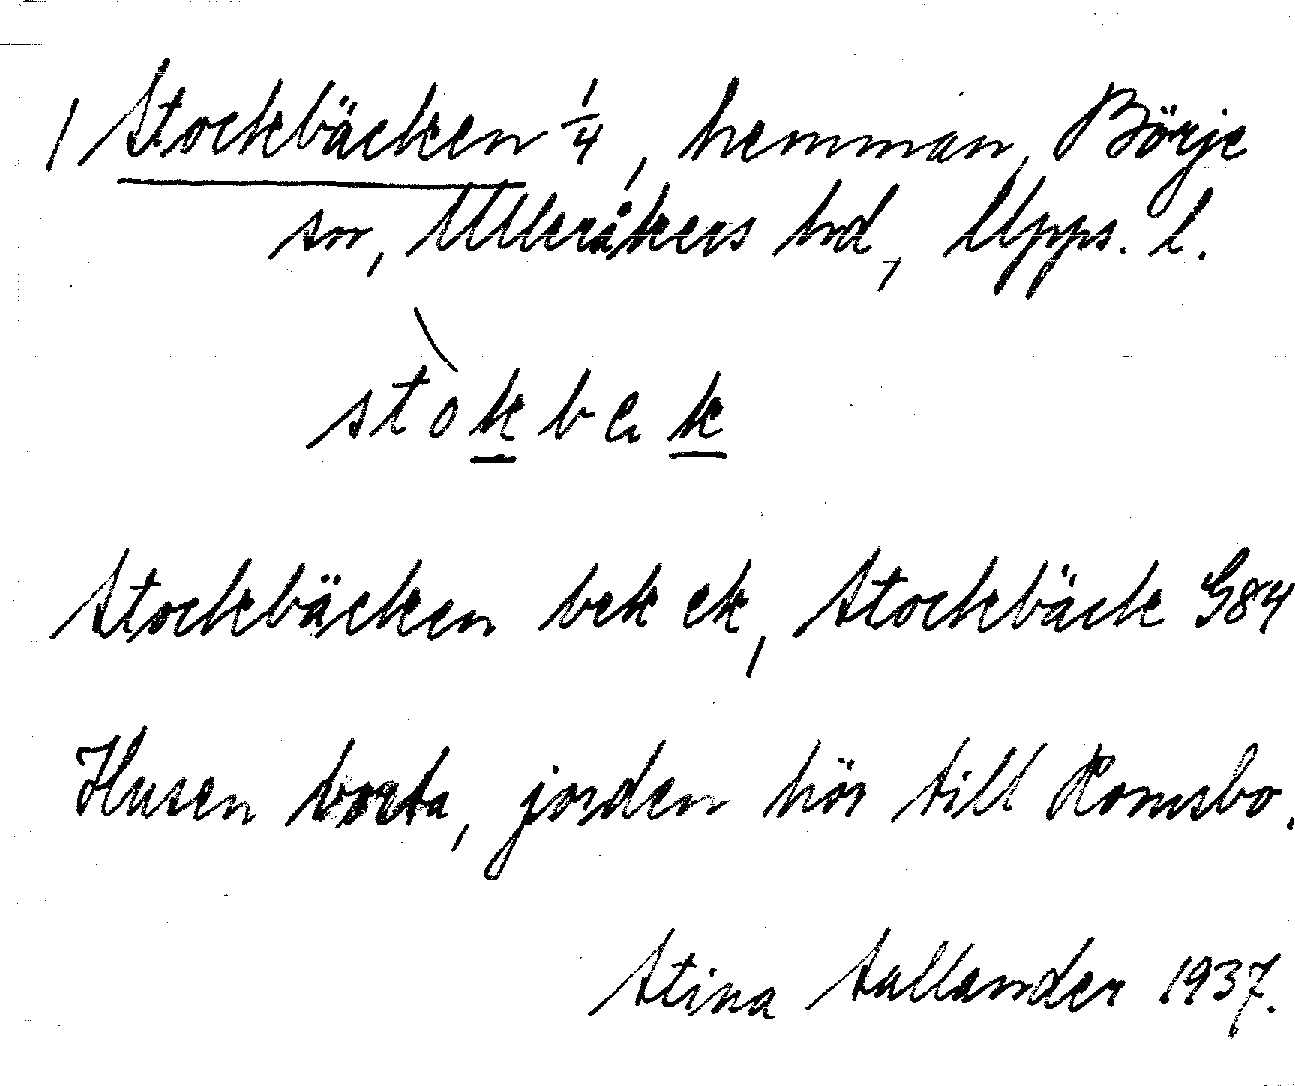 1 Stockbäcken 1/4, hemman, Börje
sn, Ulleråkers hd, Upps. l.
stòkbek
Stockbäcken bek ek, Stockbäck G84
Husen borta, jorden hör till Romsbo.
Stina Sallander 1937.